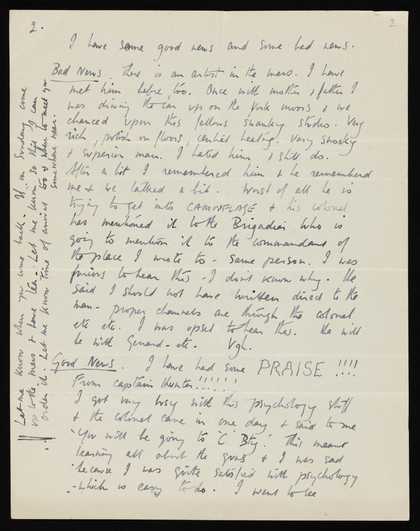 2.
2
I have some good news and some bad news.
Bad News. There is an artist in the mess. I have
met him before, too. Once with mother & father I
was driving the car up on the York moors & we
chanced upon this fellows swanky studio. Very
rich, polish on floors, central heating. Very swanky
& superior man. I hated him, & still do.
After a bit I remembered him & he remembered
me & we talked a bit. Worst of all he is
trying to get into CAMOUFLAGE & his colonel
has mentioned it to the Brigadier who is
going to mention it to the commandant of
the place I wrote to - same person. I was
furious to hear this - I don't know why. He
said I should not have written direct to the
man - proper channels are through the colonel
etc etc. I was upset to hear this. He will
be with etc. Ugh.
Good News. I have had some PRAISE !!!!
From captain Hunter!!!!!!
I got very busy with this psychology stuff
& the colonel came in one day & said to me
"You will be going to 'C' Bty." This meant
learning all about the guns & I was sad
because I was quite satisfied with psychology
- which is easy to do. I went to see
Let me know when you come back. If on Sunday come
up to the mess & have tea. Let me know so that I can
order it. Let me know time of arrival too & when to meet you
somewhere near.